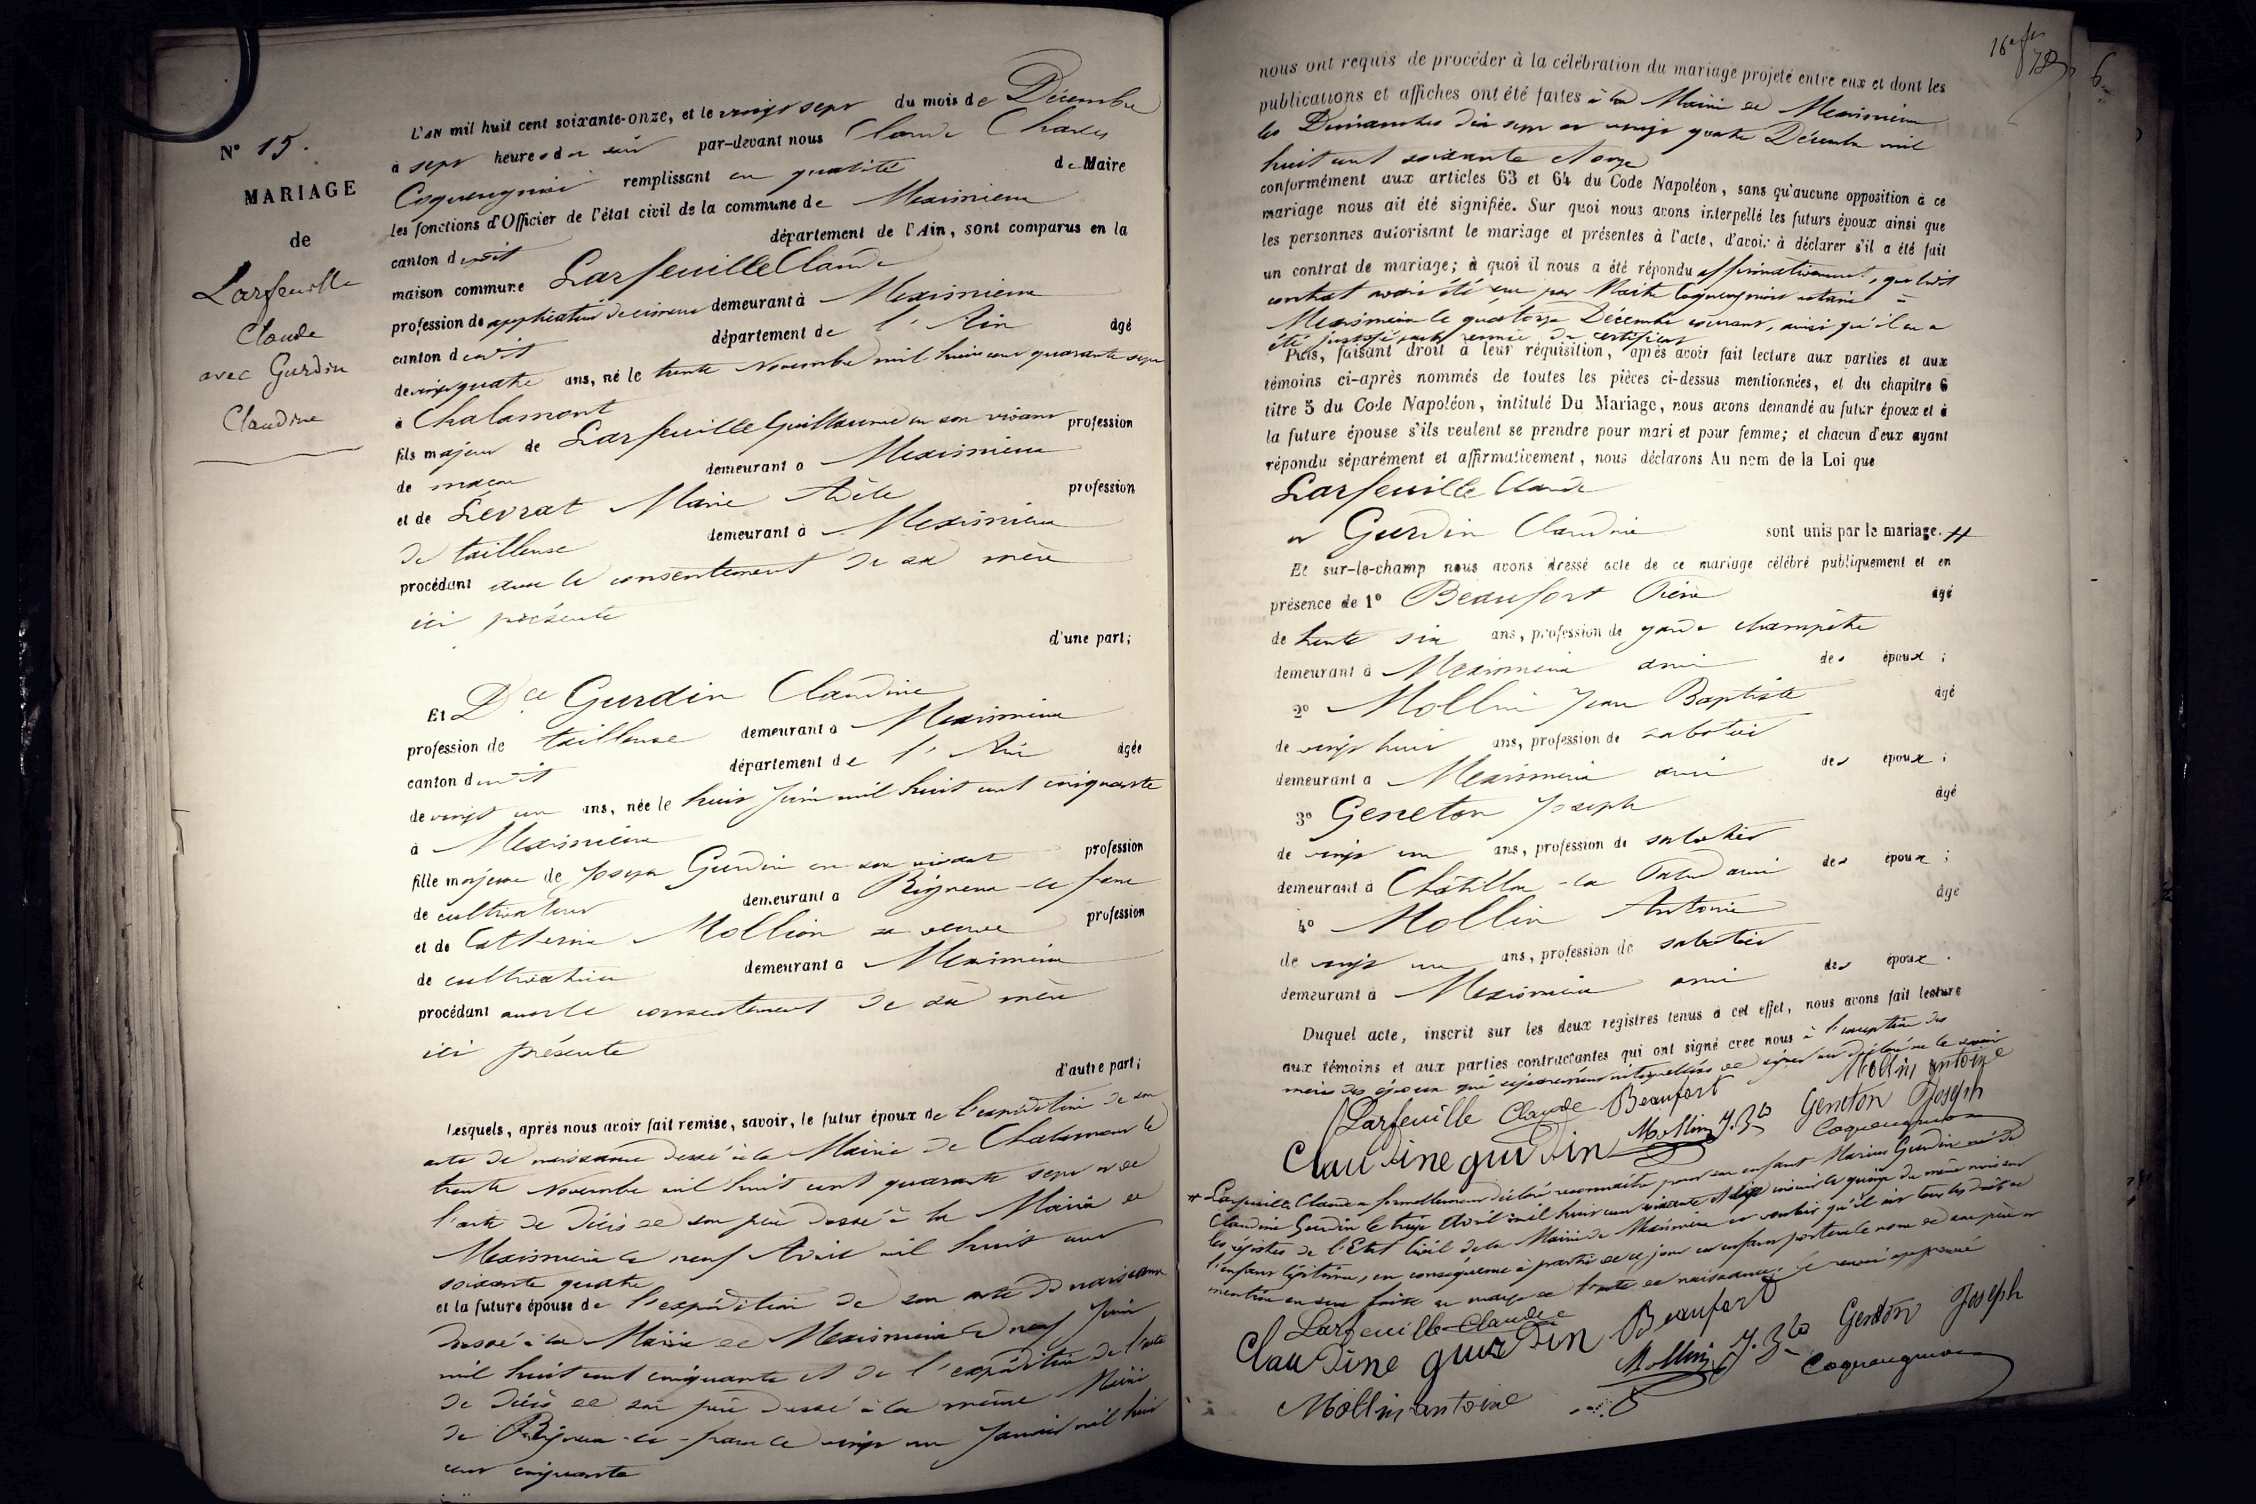 N° 15.
MARIAGE
de
Larfeuille
Claude
avec Gurdin
Claudine
L'AN mil huit cent soixante-onze, et le vingt sept du mois de Décembre
à sept heures du soir par-devant nous Claude Charles
Coqueugniot remplissant en qualité de Maire
les fonctions d'Officier de l'état civil de la commune de Meximieux
canton dudit département de l'Ain, sont comparus en la
maison commune Larfeuille Claude
profession de demeurant à Meximieux
canton dudit département de l'Ain âgé
de vingt quatre ans, né le trente Novembre mil huit cent quarante sept
à Chalamont
fils majeur de Larfeuille Guillaume en son vivant profession
de maçon demeurant à Meximieux
et de Levrat Marie Adèle profession
de tailleuse demeurant à Meximieux
procédant avec le consentement de sa mère
ici présente
d'une part;
Et Dlle Gurdin Claudine
profession de tailleuse demeurant à Meximieux
canton dudit département de l'Ain âgée
de vingt un ans, née le huit Juin mil huit cent cinquante
à Meximieux
fille majeure de Joseph Gurdin en son vivant profession
de cultivateur demeurant à Rigneux-le-franc
et de Catherine Mollion sa veuve profession
de cultivatrice demeurant à Meximieux
procédant avec le consentement de sa mère
ici présente
d'autre part;
Lesquels, après nous avoir fait remise, savoir, le futur époux de l'expédition de son
acte de naissance dressé à la Mairie de Chalamont le
trente Novembre mil huit cent quarante sept et de
l'acte de décès de son père dressé à la Mairie de
Meximieux le neuf Avril mil huit cent
soixante quatre
et la future épouse de l'expédition de son acte de naissance
dressé à la Mairie de Meximieux le neuf Juin
mil huit cent cinquante et de l'expédition de l'acte
de décès de son père dressé à la même Mairie
de Rigneux-le-franc le vingt un Janvier mil huit
cent cinquante
nous ont requis de procéder à la célébration du mariage projeté entre eux et dont les
publications et affiches ont été faites à la Mairie de Meximieux
les Dimanches dix sept et vingt quatre Décembre mil
huit cent soixante et onze
conformément aux articles 63 et 64 du Code Napoléon, sans qu'aucune opposition à ce
mariage nous ait été signifiée. Sur quoi nous avons interpellé les futurs époux ainsi que
les personnes autorisant le mariage et présentes à l'acte, d'avoir à déclarer s'il a été fait
un contrat de mariage; à quoi il nous a été répondu affirmativement, que ledit
contrat avait été reçu par Maître Coqueugniot notaire à
Meximieux le quatorze Décembre courant, ainsi qu'il en a
été justifié par la remise du certificat
Puis, faisant droit à leur réquisition, après avoir fait lecture aux parties et aux
témoins ci-après nommés de toutes les pièces ci-dessus mentionnées, et du chapitre 6
titre 5 du Code Napoléon, intitulé Du Mariage, nous avons demandé au futur époux et à
la future épouse s'ils veulent se prendre pour mari et pour femme; et chacun d'eux ayant
répondu séparément et affirmativement, nous déclarons Au nom de la Loi que
Larfeuille Claude
et Gurdin Claudine sont unis par le mariage. #
Et sur-le-champ nous avons dressé acte de ce mariage célébré publiquement et en
présence de 1° Beaufort Pierre âgé
de trente six ans, profession de garde champêtre
demeurant à Meximieux ami des époux;
2° Mollin Jean Baptiste âgé
de vingt huit ans, profession de sabotier
demeurant à Meximieux ami des époux;
3° Geneton Joseph âgé
de vingt un ans, profession de sabotier
demeurant à Châtillon-la Palud ami des époux;
4° Mollin Antoine âgé
de vingt un ans, profession de sabotier
demeurant à Meximieux ami des époux.
Duquel acte, inscrit sur les deux registres tenus à cet effet, nous avons fait lecture
aux témoins et aux parties contractantes qui ont signé avec nous à l'exception des
mères des époux qui séparément interpellées de signer ont déclaré ne le savoir
Mollin antoine
Larfeuille Claude Beaufort
Mollin J. Bte Geneton Joseph
Claudine gurdin Coqueugniot
# Larfeuille Claude a formellement déclaré reconnaître pour son enfant Marius Gurdin né de
Claudine Gurdin le treize Avril mil huit cent soixante et dix inscrit le quinze du même mois sur
les régistres de l'Etat Civil de la Mairie de Meximieux et vouloir qu'il ait tous les droits de
l'enfant légitime, en conséquence à partir de ce jour cet enfant portera le nom de son père et
mention en sera faite en marge de l'acte de naissance. le renvoi approuvé
Larfeuille Claude Beaufort
Claudine gurdin Mollin J. Bte Geneton Joseph
Mollin antoine Coqueugniot